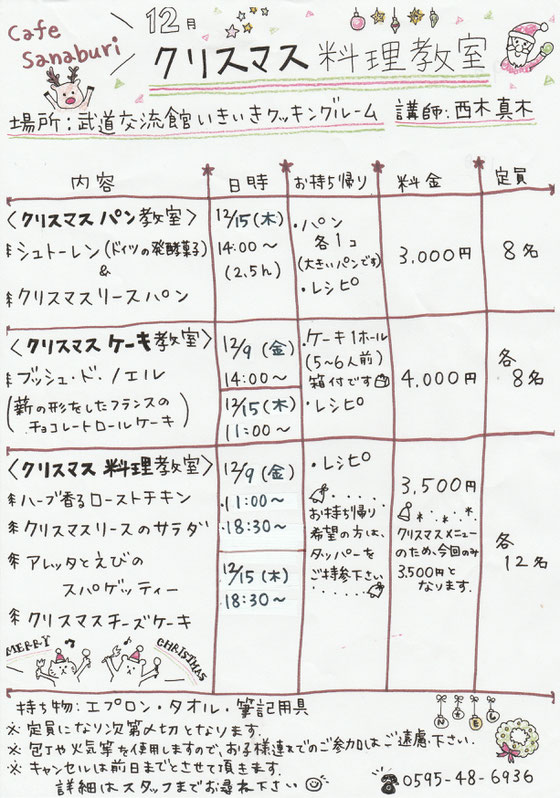 Cafe Sanaburi
12月
クリスマス料理教室
場所:武道交流館いきいきクッキングルーム 講師:西木真木
内容 日時 お持ち帰り 料金 定員
〈クリスマスパン教室〉
シュトーレン(ドイツの発酵菓子)
&
クリスマスリースパン
12/15(木)
14:00〜
(2.5h)
・パン
各1コ
(大きいパンです)
・レシピ
3,000円
8名
〈クリスマスケーキ教室〉
ブッシュ・ド・ノエル
(薪の形をしたフランスの
チョコレートロールケーキ)
12/9(金)
14:00〜
12/15(木)
11:00〜
・ケーキ1ホール
(5〜6人前)
箱付です
・レシピ
4,000円
各
8名
〈クリスマス料理教室〉
ハーブ香るローストチキン
クリスマスリースのサラダ
アレッタとえびの
スパゲッティー
クリスマスチーズケーキ
MERRY CHRISTMAS
12/9(金)
・11:00〜
・18:30〜
12/15(木)
18:30〜
・レシピ
お持ち帰り
希望の方は、
タッパーを
ご持参下さい
3,500円
クリスマスメニュー
のため、今回のみ
3,500円と
なります。
各
12名
持ち物:エプロン・タオル・筆記用具
NOEL
※定員になり次第〆切となります。
※包丁や火気等を使用しますので、お子様連れでのご参加はご遠慮下さい。
※キャンセルは前日までとさせて頂きます。
詳細はスタッフまでお尋ね下さい
0595-48-6936